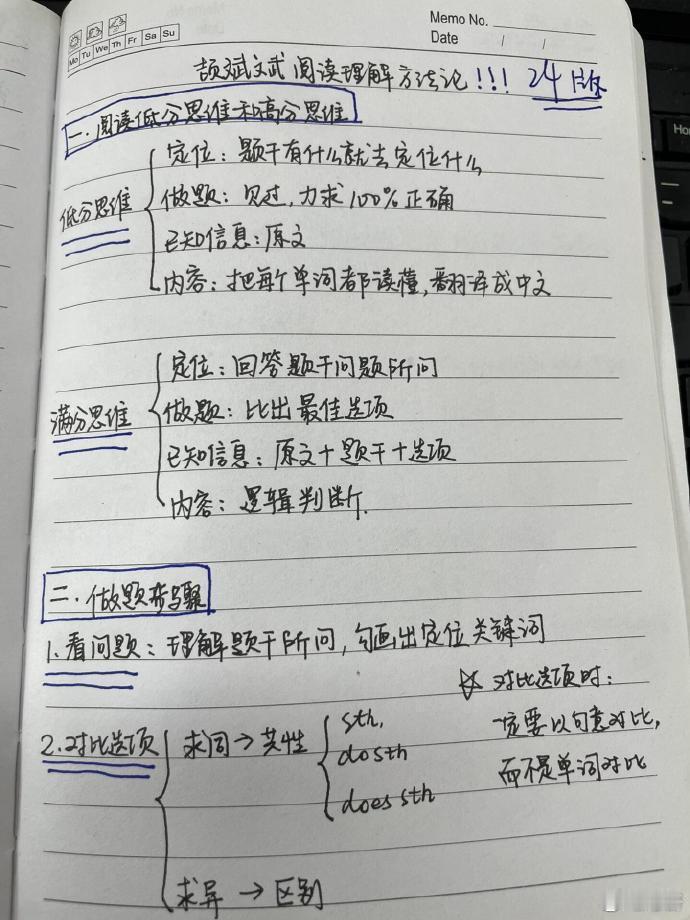 Memo No.
Mo Tu We Th Fr Sa Su
Date / /
颉斌斌 阅读理解方法论!!! 24版
一.阅读低分思维和高分思维
低分思维
定位:题干有什么就去定位什么
做题:见过,力求100%正确
已知信息:原文
内容:把每个单词都读懂,翻译成中文
满分思维
定位:回答题干问题所问
做题:比出最佳选项
已知信息:原文+题干+选项
内容:逻辑判断.
二.做题步骤
1.看问题:理解题干所问,勾画出定位关键词
2.对比选项
求同→共性
sth,
do sth
does sth
求异→区别
☆ 对比选项时:
一定要以句意对比,
而不是单词对比
Hom